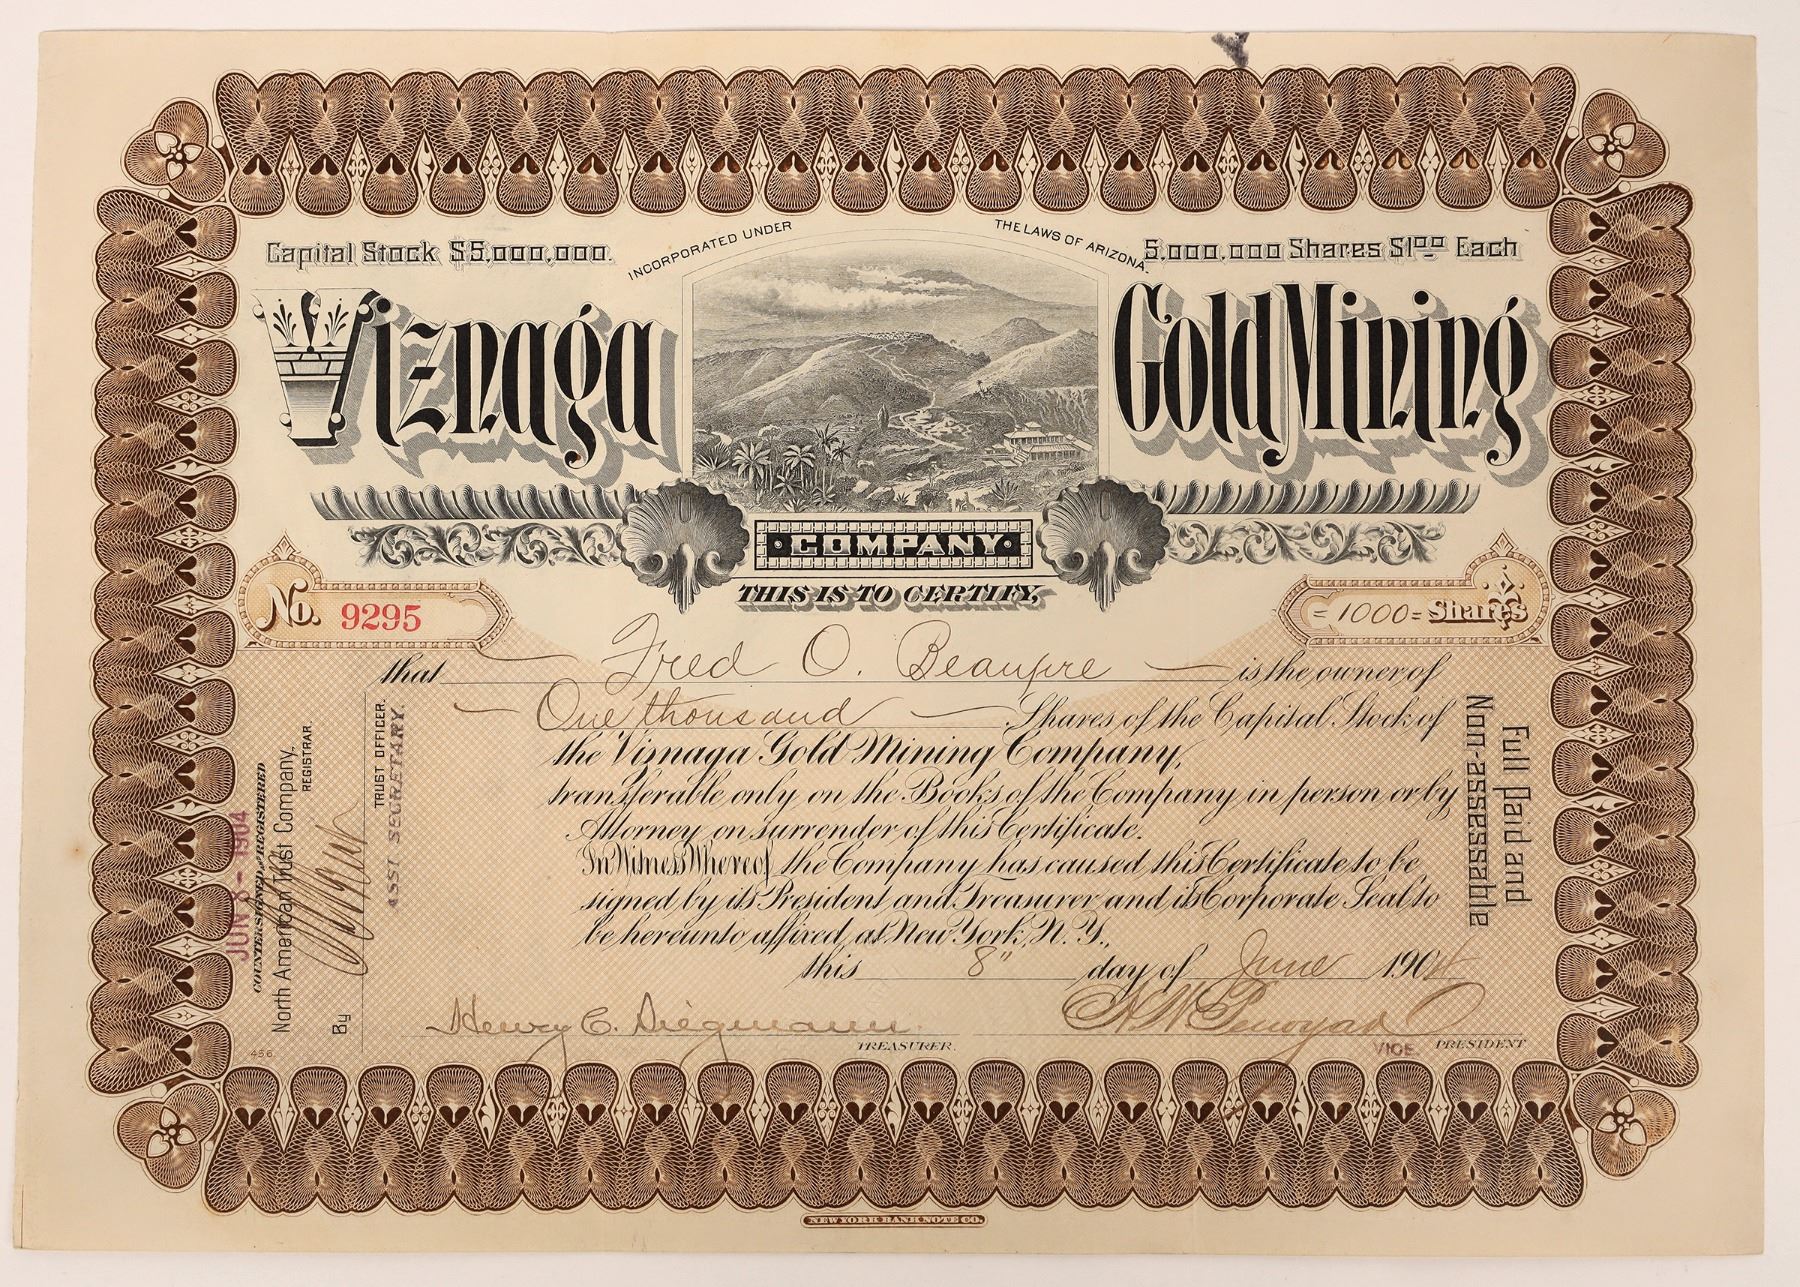 INCORPORATED UNDER THE LAWS OF ARIZONA.
Capital Stock $5,000,000.
5,000,000 Shares $1⁰⁰ Each
Viznaga Gold Mining
COMPANY
THIS IS TO CERTIFY,
No. 9295
=1000= Shares
that Fred O. Beaupre is the owner of
One thousand Shares of the Capital Stock of
the Viznaga Gold Mining Company,
transferable only on the Books of the Company in person or by
Attorney on surrender of this Certificate.
In Witness Whereof, the Company has caused this Certificate to be
signed by its President and Treasurer and its Corporate Seal to
be hereunto affixed, at New York, N.Y.,
this 8" day of June 1904
Henry C. Diegmann
TREASURER.
VICE PRESIDENT
Full Paid and
Non-assessable
JUN 8 - 1904
COUNTERSIGNED & REGISTERED
North American Trust Company,
REGISTRAR
By
TRUST OFFICER.
ASST SECRETARY.
456.
NEW YORK BANK NOTE CO.